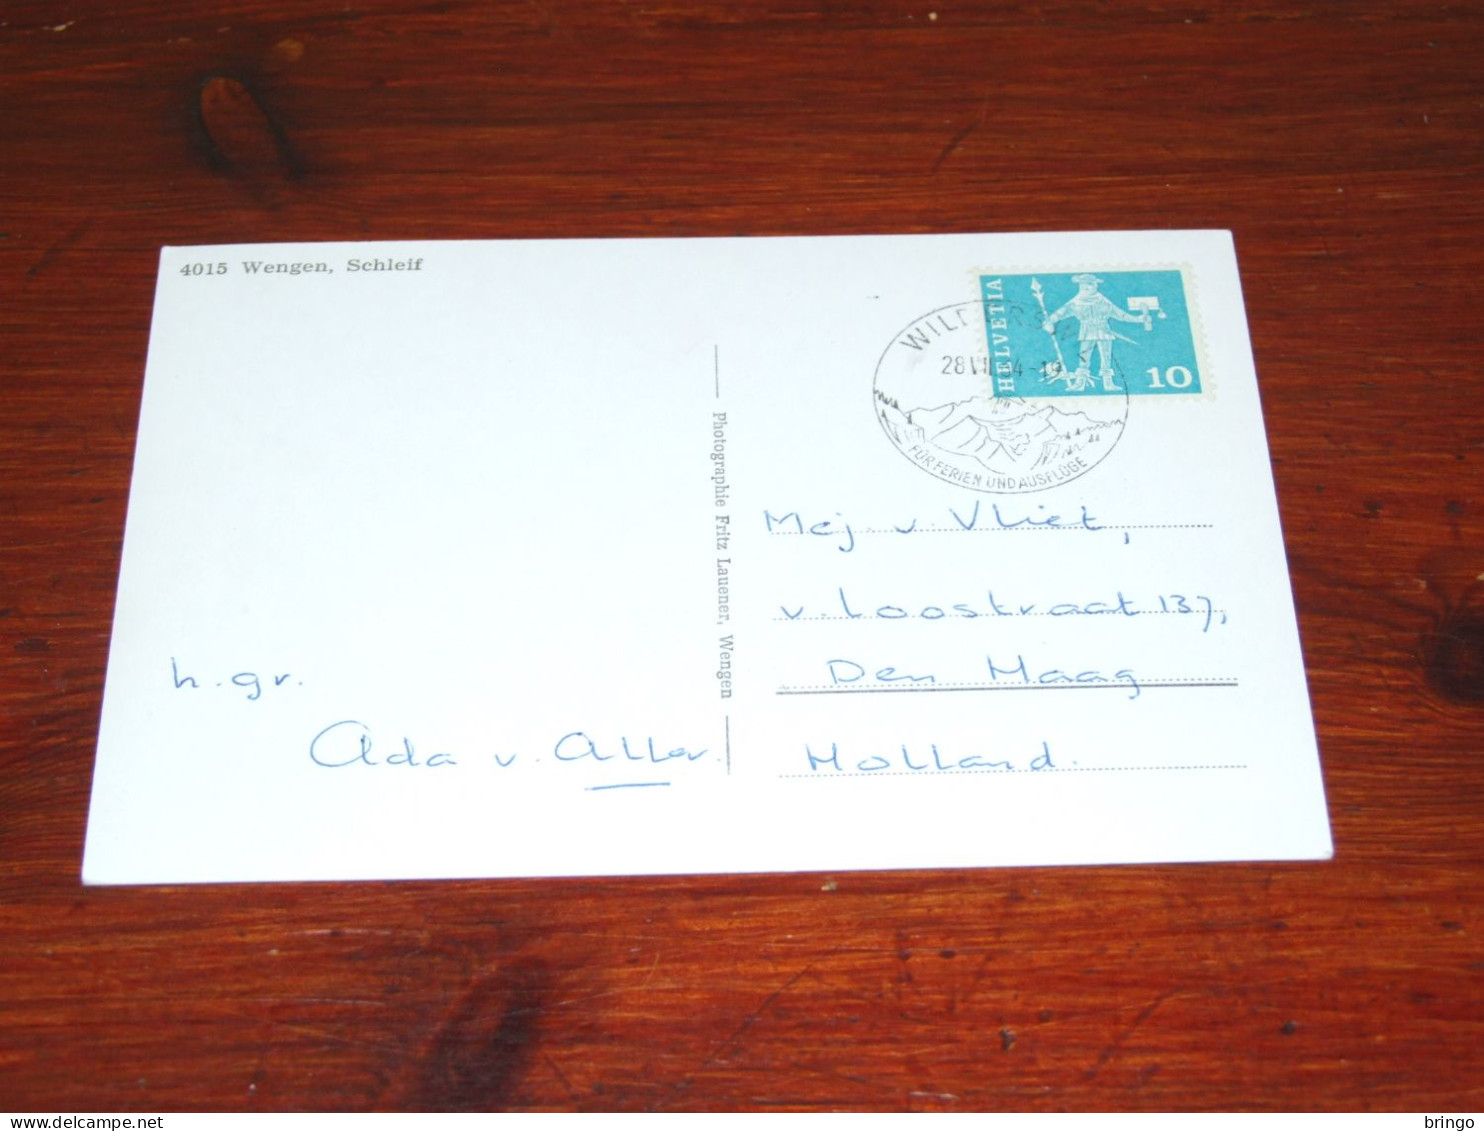 4015 Wengen, Schleif
HELVETIA
10
WILDERSWIL
28 VII 64-19
FÜR FERIEN UND AUSFLÜGE
Photographie Fritz Lauener, Wengen
Mej. v. Vliet,
v. Loostraat 137,
Den Haag
Holland.
h. gr.
Ada v. Aller.
delcampe.net
bringo